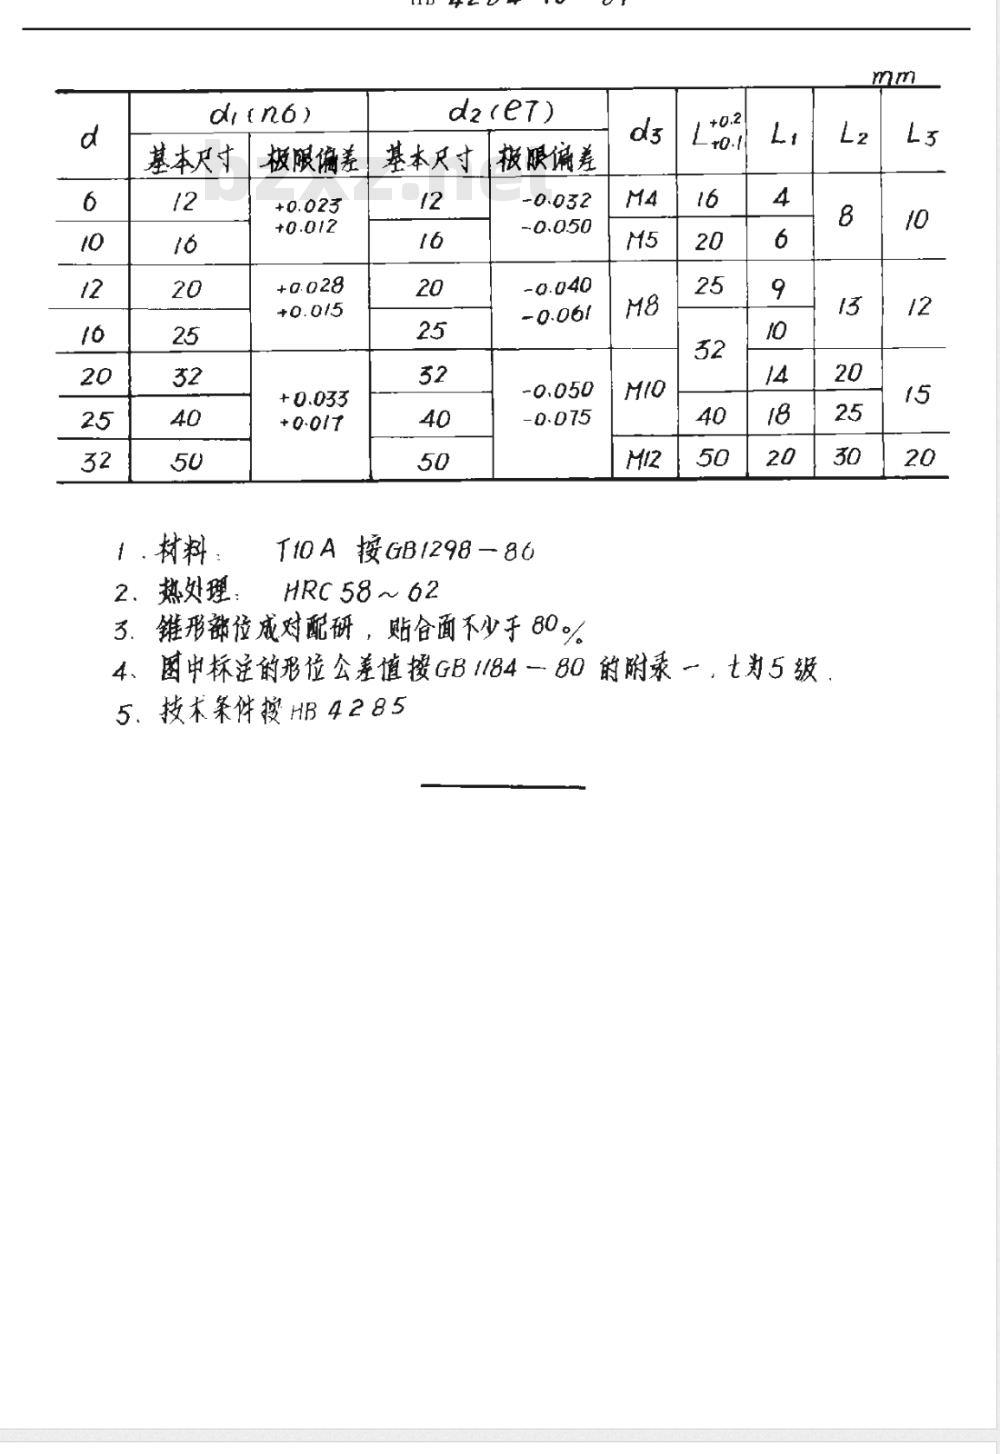 mm
d d₁(n6) d₂(e7) d₃ L+0.2+0.1 L₁ L₂ L₃
基本尺寸 极限偏差 基本尺寸 极限偏差
bzxz.net
6 12 +0.023 12 -0.032 M4 16 4 8 10
+0.012 -0.050
10 16 16 M5 20 6
12 20 +0.028 20 -0.040 M8 25 9 13 12
+0.015 -0.061
16 25 25 32 10
20 32 +0.033 32 -0.050 M10 14 20 15
25 40 +0.017 40 -0.075 40 18 25
32 50 50 M12 50 20 30 20
1.材料: T10A 按GB1298—86
2.热处理: HRC 58~62
3.锥形部位成对配研,贴合面不少于80%
4、图中标注的形位公差值按GB 1184—80 的附录一,t为5级.
5、技术条件按 HB 4285